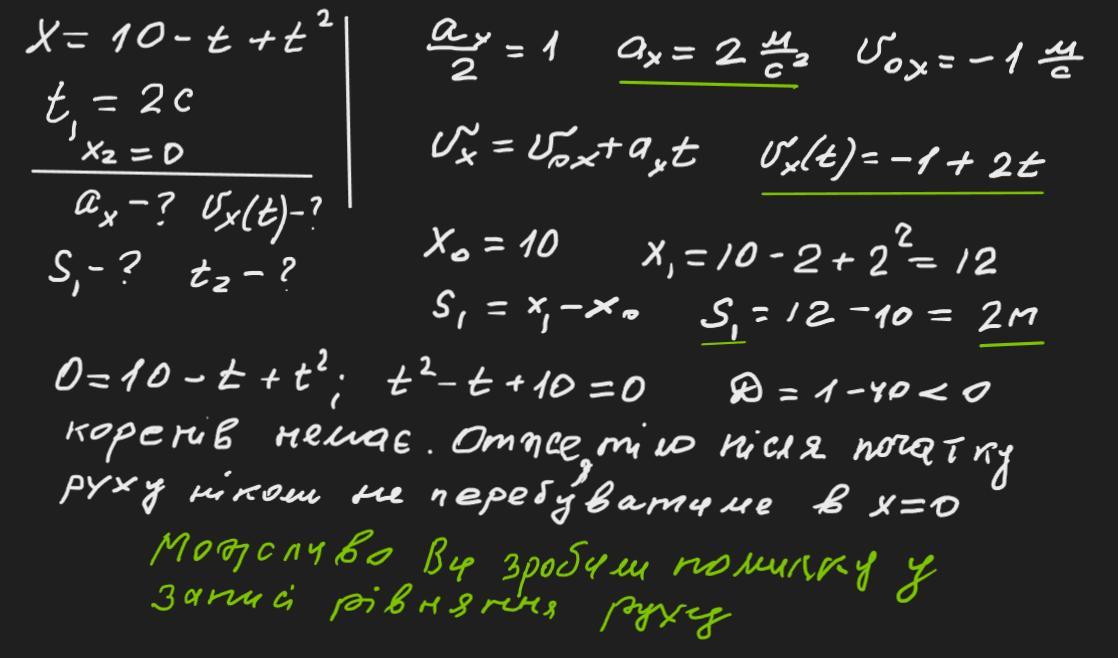 x = 10 - t + t²
t₁ = 2c
x₂ = 0
aₓ - ? υₓ(t) - ?
S₁ - ? t₂ - ?
aₓ/2 = 1 aₓ = 2 м/с² υ₀ₓ = -1 м/с
υₓ = υ₀ₓ + aₓt υₓ(t) = -1 + 2t
x₀ = 10 x₁ = 10 - 2 + 2² = 12
S₁ = x₁ - x₀ S₁ = 12 - 10 = 2м
0 = 10 - t + t²; t² - t + 10 = 0 D = 1 - 40 < 0
коренів немає. Отже, тіло після початку
руху ніколи не перебуватиме в x=0
Можливо Ви зробили помилку у
записі рівняння руху